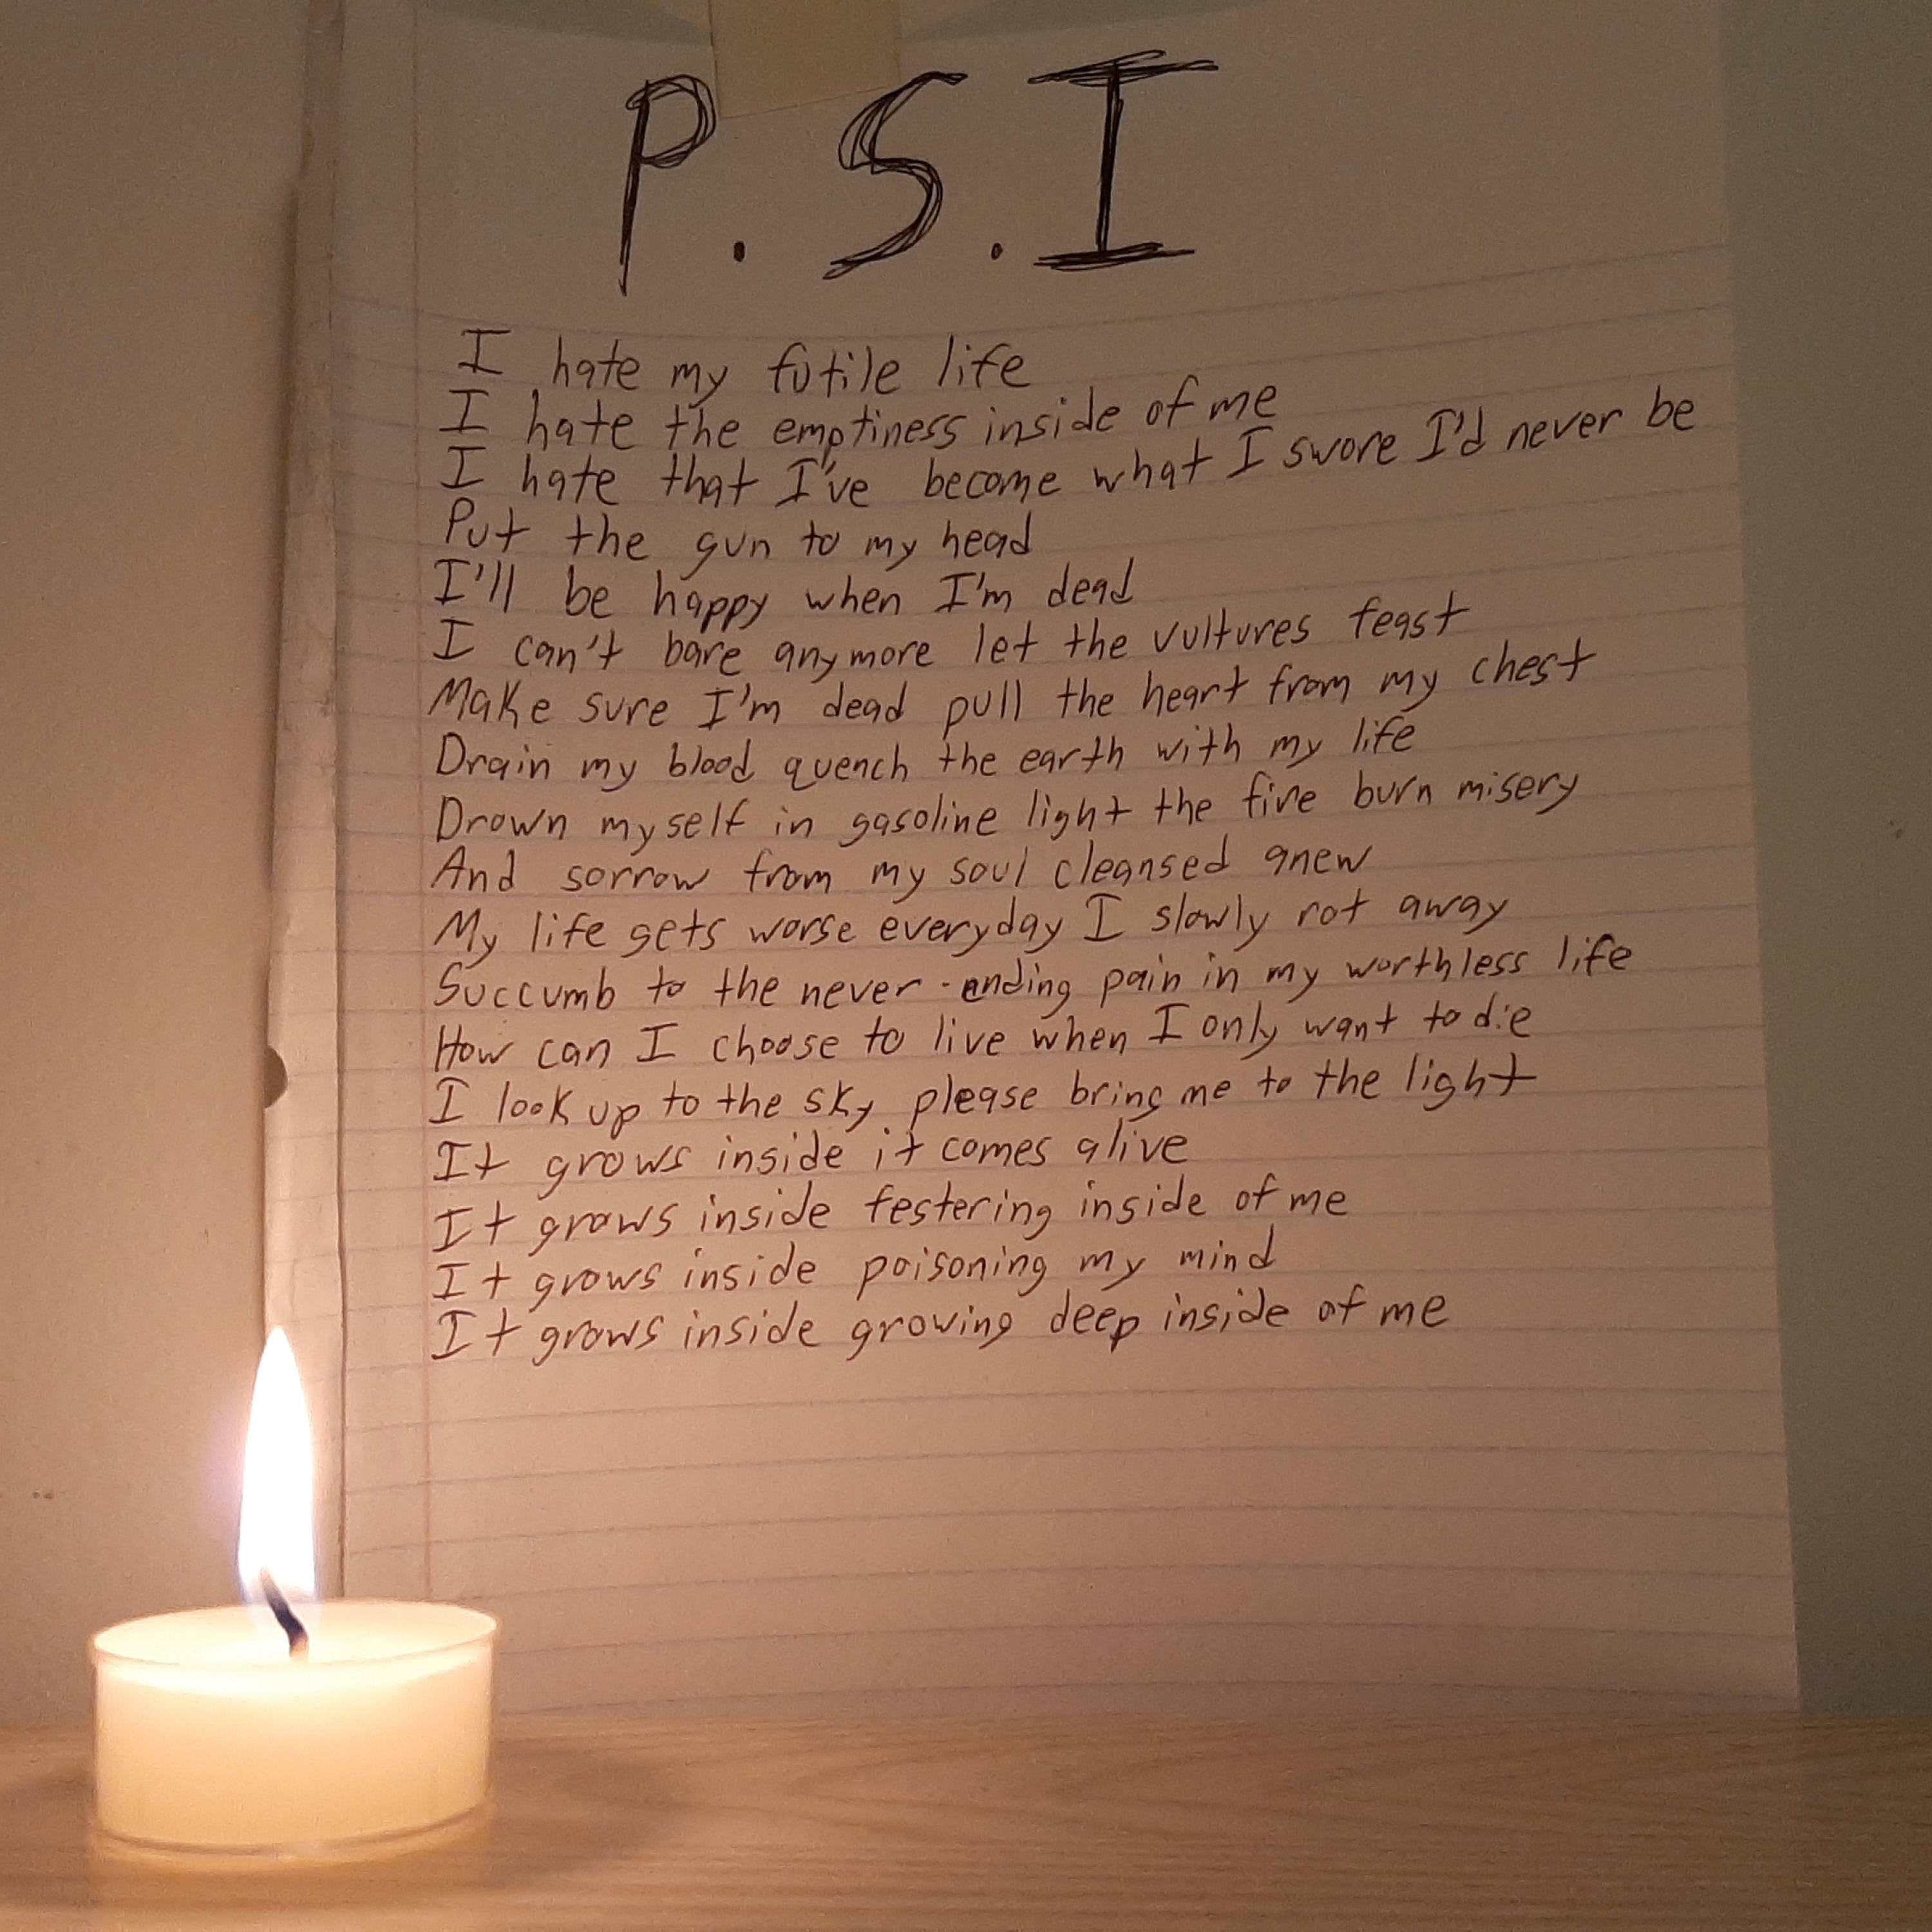 P.S.I
I hate my futile life
I hate the emptiness inside of me
I hate that I've become what I swore I'd never be
Put the gun to my head
I'll be happy when I'm dead
I can't bare anymore let the vultures feast
Make sure I'm dead pull the heart from my chest
Drain my blood quench the earth with my life
Drown myself in gasoline light the fire burn misery
And sorrow from my soul cleansed anew
My life gets worse everyday I slowly rot away
Succumb to the never-ending pain in my worthless life
How can I choose to live when I only want to die
I look up to the sky please bring me to the light
It grows inside it comes alive
It grows inside festering inside of me
It grows inside poisoning my mind
It grows inside growing deep inside of me